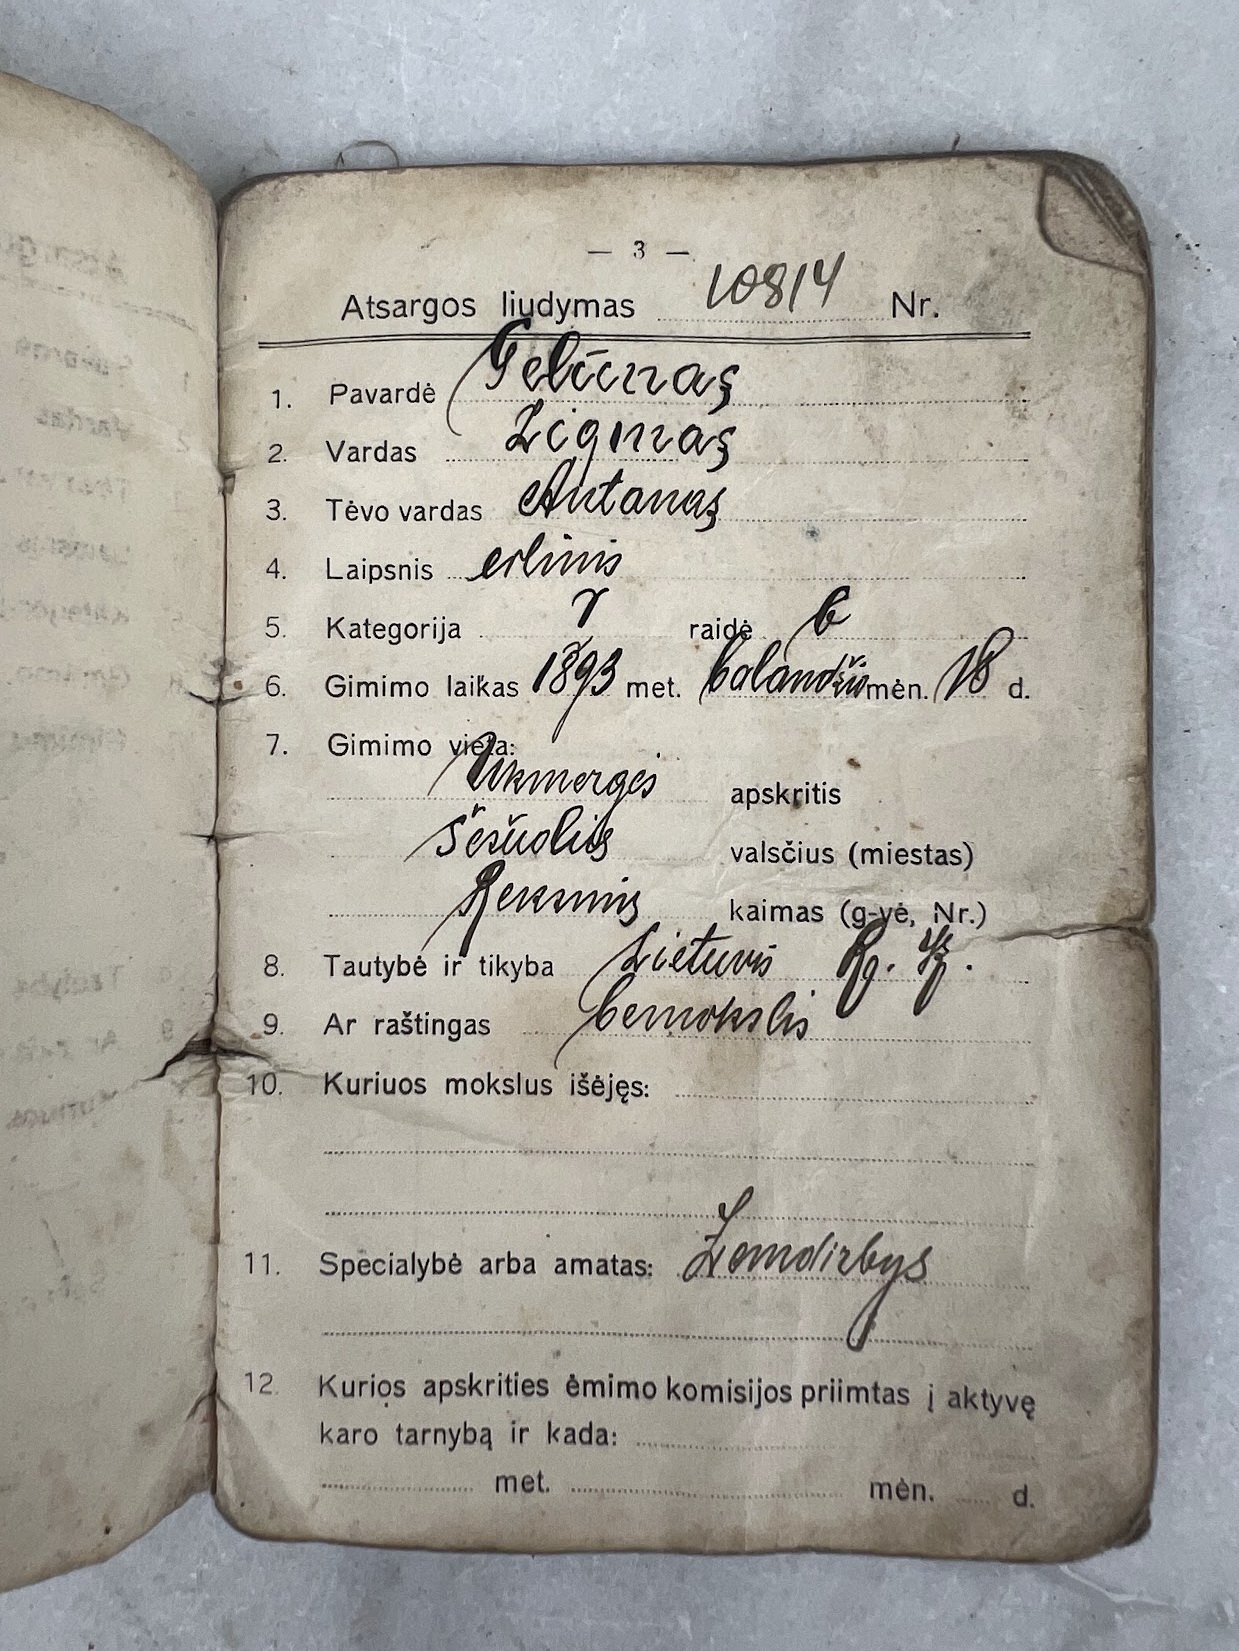 — 3 —
Atsargos liudymas 10814 Nr.
1. Pavardė Gelūnas
2. Vardas Zigmas
3. Tėvo vardas Antanas
4. Laipsnis eilinis
5. Kategorija raidė b
6. Gimimo laikas 1893 met. balandžio mėn. 18 d.
7. Gimimo vieta:
Ukmergės apskritis
Šešuolis valsčius (miestas)
kaimas (g-vė, Nr.)
8. Tautybė ir tikyba Lietuvis
9. Ar raštingas bemokslis
10. Kuriuos mokslus išėjęs:
11. Specialybė arba amatas: Žemdirbys
12. Kurios apskrities ėmimo komisijos priimtas į aktyvę
karo tarnybą ir kada:
met. mėn. d.